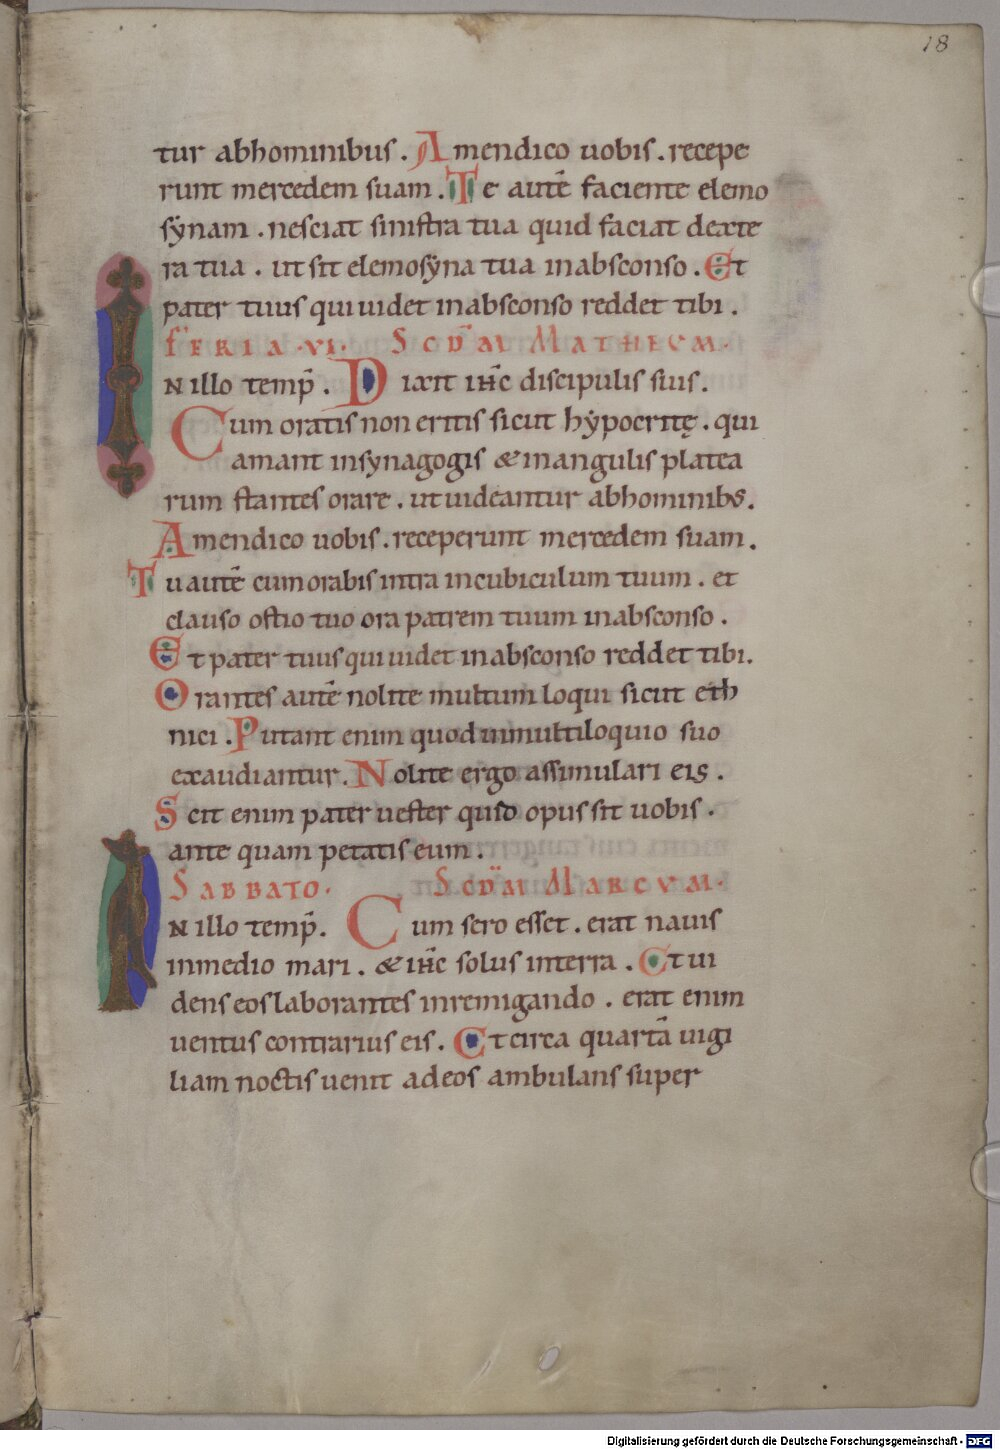 18
tur abhominibus. Amendico uobis. recepe
runt mercedem suam. Te autē faciente elemo
sẏnam. nesciat sinistra tua quid faciat dexte
ra tua. ut sit elemosẏna tua inabsconso. Et
pater tuus qui uidet inabsconso reddet tibi.
FERIA .VI. SCDM MATHEVM.
IN illo temp̄. Dixit ih̄c discipulis suis.
Cum oratis non eritis sicut hẏpocritę. qui
amant insynagogis & inangulis platea
rum stantes orare. ut uideantur abhominibs.
Amendico uobis. receperunt mercedem suam.
Tu autē cum orabis intra incubiculum tuum. et
clauso ostio tuo ora patrem tuum inabsconso.
Et pater tuus qui uidet inabsconso reddet tibi.
Orantes autē nolite multum loqui sicut eth
nici. Putant enim quod inmultiloquio suo
exaudiantur. Nolite ergo assimulari eis.
Scit enim pater uester quid opus sit uobis.
ante quam petatis eum.
SABBATO. SCDM MARCVM.
IN illo temp̄. Cum sero esset. erat nauis
inmedio mari. & ih̄c solus interra. Et ui
dens eos laborantes inremigando. erat enim
uentus contrarius eis. Et circa quartā uigi
liam noctis uenit adeos ambulans super
Digitalisierung gefördert durch die Deutsche Forschungsgemeinschaft - DFG